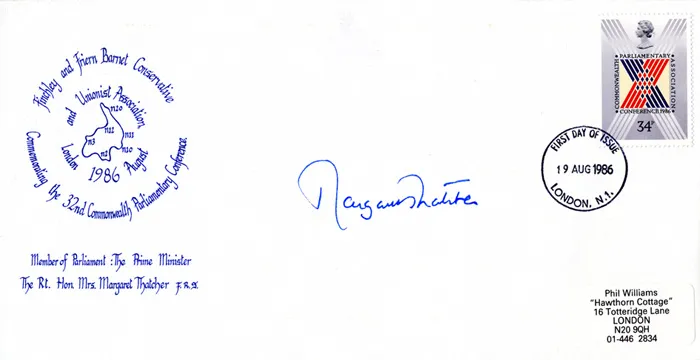 Finchley and Friern Barnet Conservative
and Unionist Association
London
1986
August
n20
n3
n11
n12
n10
Commemorating the 32nd Commonwealth Parliamentary Conference
Member of Parliament : The Prime Minister
The Rt. Hon. Mrs. Margaret Thatcher F.R.S.
Margaret Thatcher
PARLIAMENTARY
COMMONWEALTH
ASSOCIATION
CONFERENCE 1986
34P
FIRST DAY OF ISSUE
19 AUG 1986
LONDON, N.1.
Phil Williams
"Hawthorn Cottage"
16 Totteridge Lane
LONDON
N20 9QH
01-446 2834